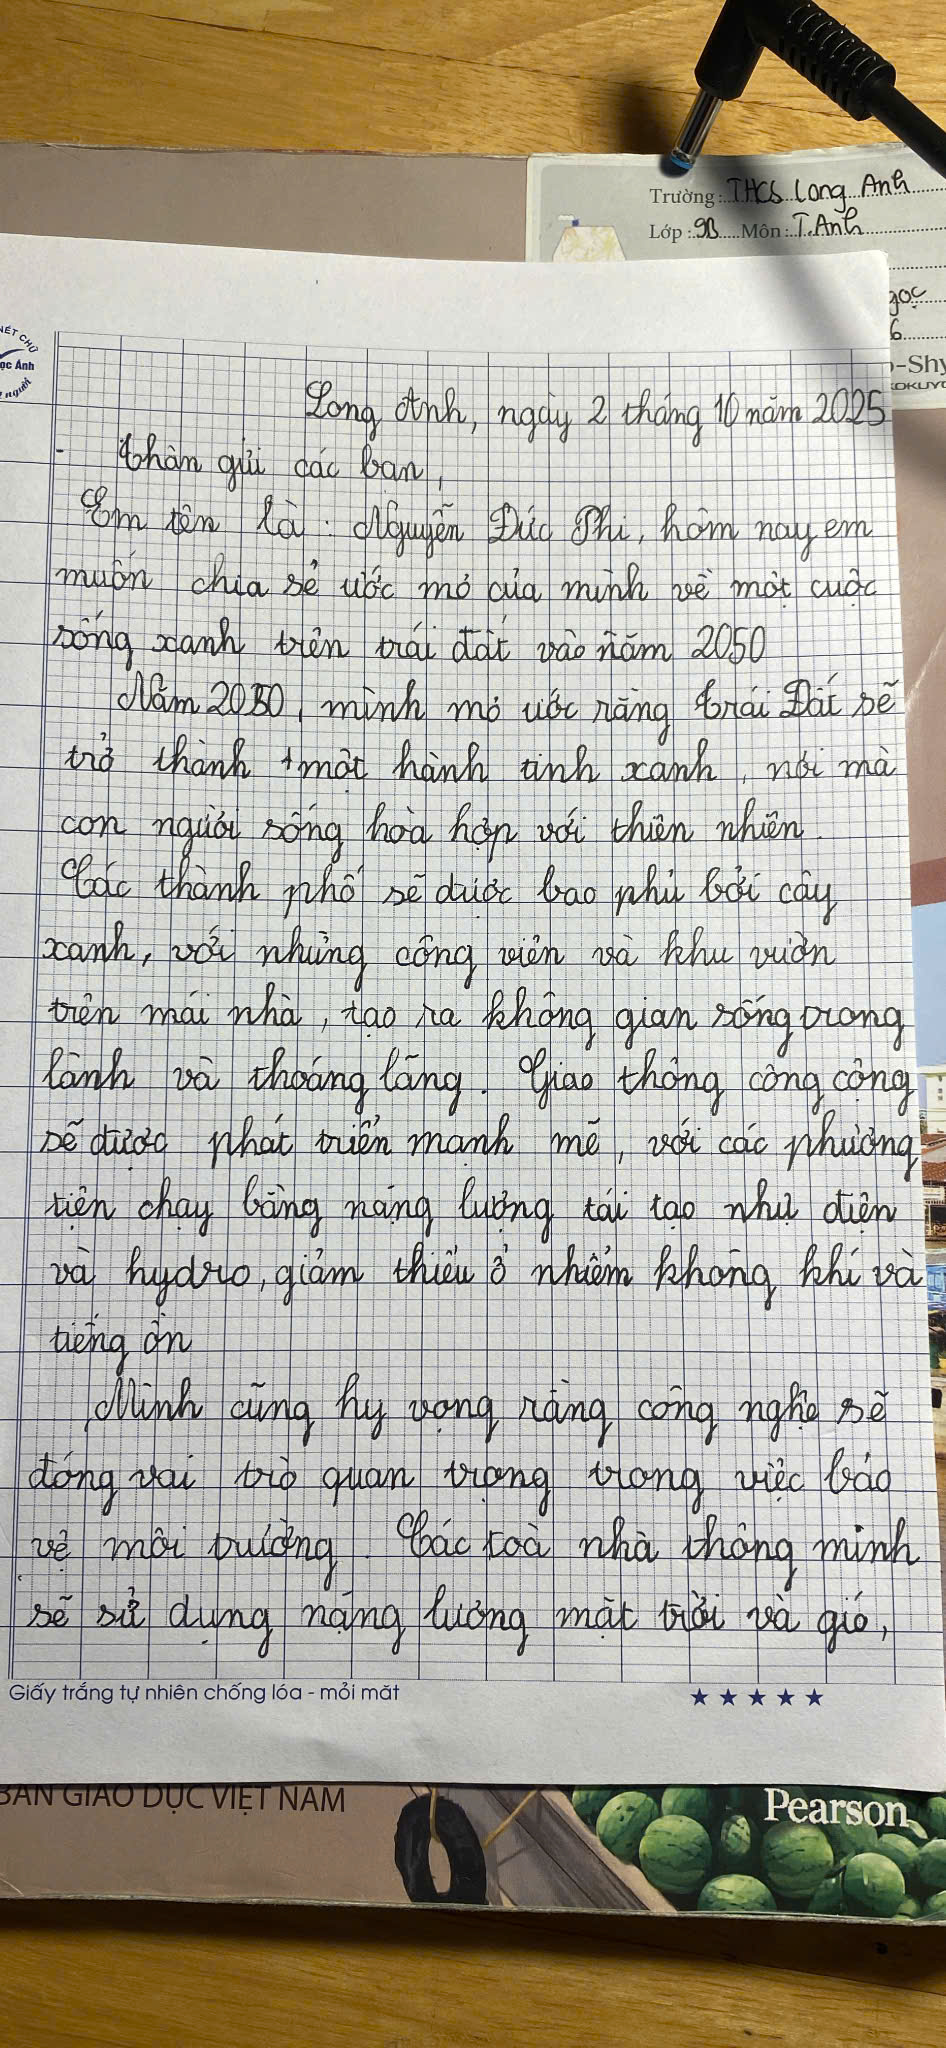 Trường: THCS Long Anh
Lớp: 9B Môn: T.Anh
gọc
6
-Shy
KOKUYO
NÉT CHỮ
ọc Ánh
người
Long Anh, ngày 2 tháng 10 năm 2025
- Thân gửi các bạn,
Em tên là: Nguyễn Đức Phi, hôm nay em
muốn chia sẻ ước mơ của mình về một cuộc
sống xanh trên trái đất vào năm 2050
Năm 2050, mình mơ ước rằng trái Đất sẽ
trở thành một hành tinh xanh, nơi mà
con người sống hòa hợp với thiên nhiên.
Các thành phố sẽ được bao phủ bởi cây
xanh, với những công viên và khu vườn
trên mái nhà, tạo ra không gian sống trong
lành và thoáng lãng. Giao thông công cộng
sẽ được phát triển mạnh mẽ, với các phương
tiện chạy bằng năng lượng tái tạo như điện
và hydro, giảm thiểu ô nhiễm không khí và
tiếng ồn
Mình cũng hy vọng rằng công nghệ sẽ
đóng vai trò quan trọng trong việc bảo
vệ môi trường. Các toà nhà thông minh
sẽ sử dụng năng lượng mặt trời và gió,
Giấy trắng tự nhiên chống lóa - mỏi mắt
BẢN GIÁO DỤC VIỆT NAM
Pearson